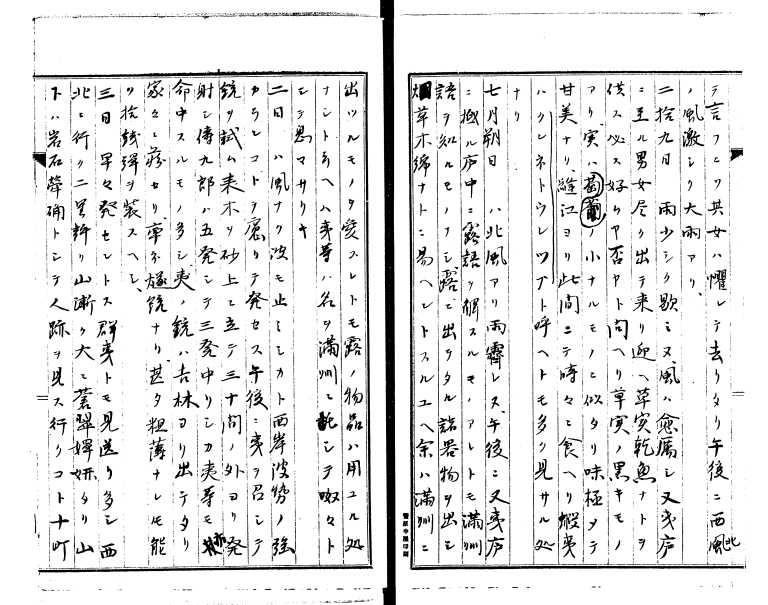 テ言フニヨリ其女ハ懼レテ去リタリ午後ニ西北風
ノ風激シク大雨アリ、
二拾九日　雨少シク歇ミ又風ハ愈厲シ又夷庐
ニ至ル男女尽ク出テ来リ迎ヘ草実乾魚ナトヲ
供ス必ス好シヤ否ヤト問ヘリ草実ノ黒キモノ
アリ実ハ葡萄ノ小ナルモノニ似タリ味極メテ
甘美ナリ縫江ヨリ此間ニテ時々ニ食ヘリ蝦夷
ハクレネトウレツプト呼ヘトモ多ク見サル処
ナリ
七月朔日　ハ北風アリ雨霽レス午後ニ又夷庐
ニ抵ル庐中ニ露語ヲ解スルモノアレトモ満洲
語ヲ知ルモノナシ露ニ出タル諸器物ヲ出シ
烟草木綿ナトニ易ヘントスルユヘ余ハ満洲ニ
出ツルモノヲ愛スレトモ露ノ物品ハ用ユル処
ナシト云ヘハ夷等ハ名ヲ満洲ニ託シテ啜々ト
シテ思マサリキ
二日　ハ風ナク波モ止ミシカト両岸波勢ノ強
カランコトヲ慮リテ発セス午後ニ夷ヲ召シテ
銃ヲ試ム表木ヲ砂上ニ立テ三十間ノ外ヨリ発
射シ傳九郎ハ五発シテ三発中リシカ夷等モ亦
命中スルモノ多シ夷ノ銃ハ吉林ヨリ出テタリ
家々ニ蔵セリ革ネ燧銃ナリ甚タ粗薄ナレモ能
ク拾銭弾ヲ装スヘシ、
三日　早々発セントス群夷トモ見送リ多シ西
北ニ行ク二里許リ山漸ク大ニ蒼翠嬋妍タリ山
下ハ岩石犖确トシテ人跡ヲ見ス行クコト十町